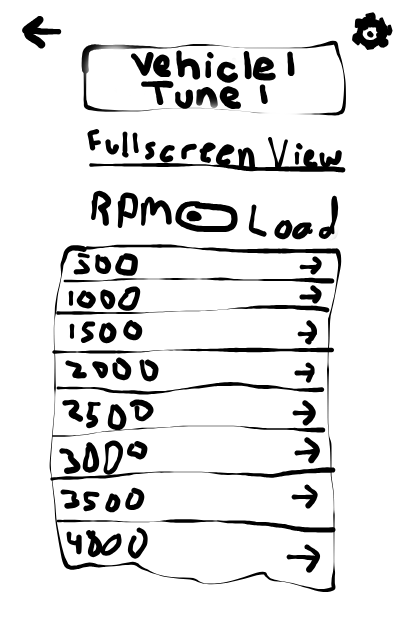 Vehicle 1
Tune 1
Fullscreen View
RPM Load
500
1000
1500
2000
2500
3000
3500
4800